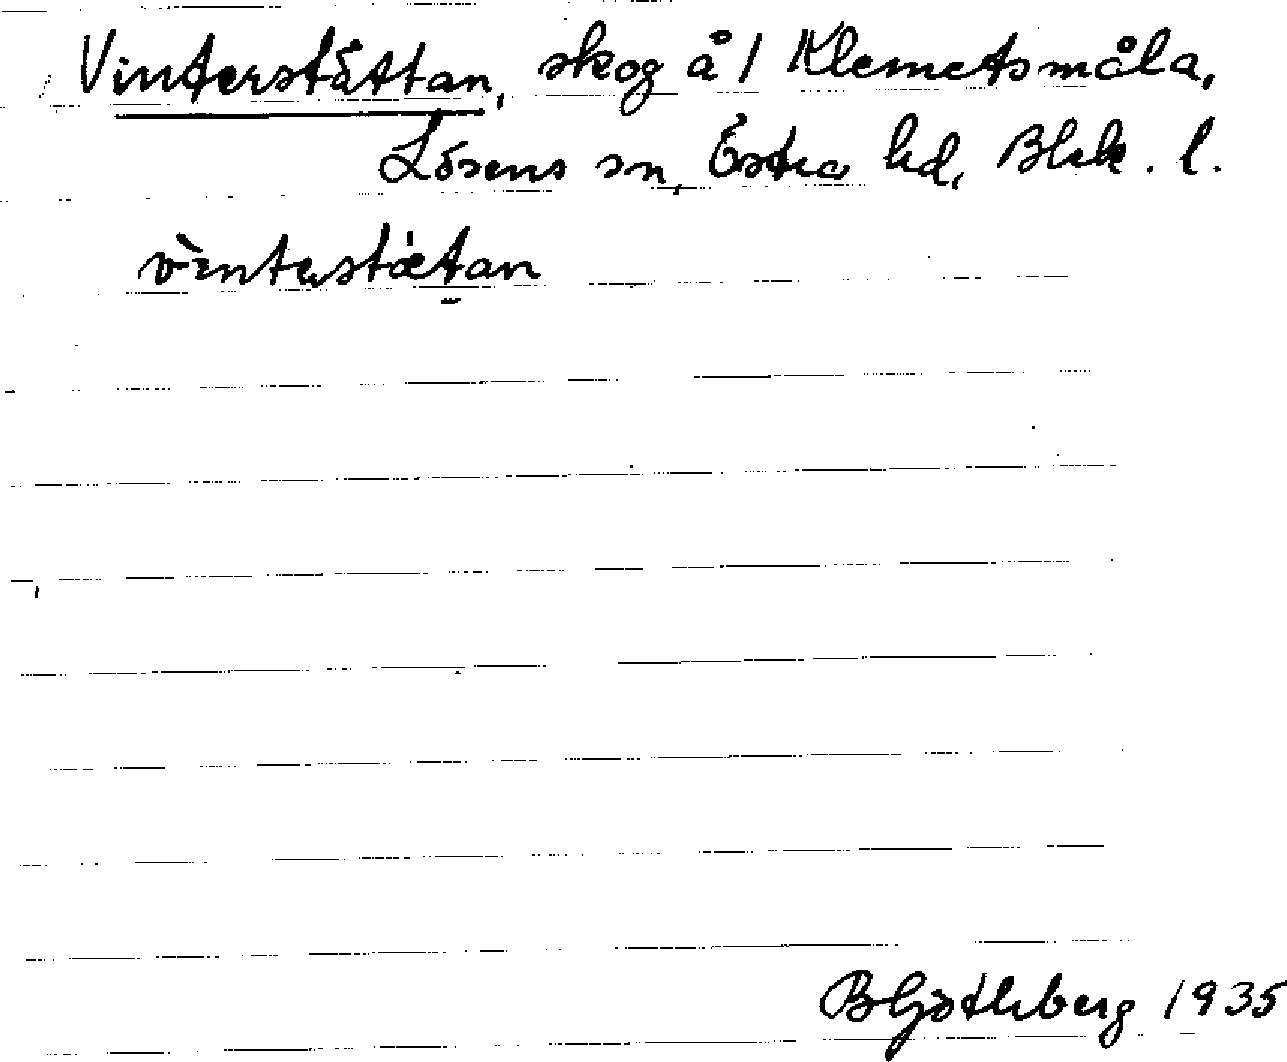 Vinterstättan, skog å 1 Klemetsmåla,
Lösens sn, Östra hd, Blek. l.
vintərstætan
BGöthberg 1935